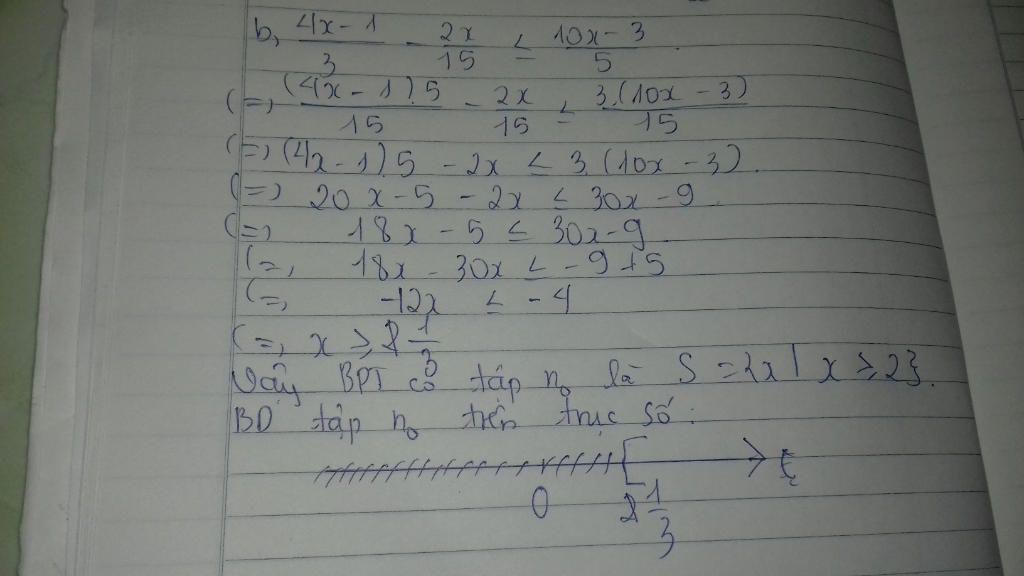 b, (4x - 1)/3 - 2x/15 ≤ (10x - 3)/5
(=) (4x - 1).5/15 - 2x/15 ≤ 3.(10x - 3)/15
(=) (4x - 1).5 - 2x ≤ 3.(10x - 3).
(=) 20x - 5 - 2x ≤ 30x - 9
(=) 18x - 5 ≤ 30x - 9
(=) 18x - 30x ≤ -9 + 5
(=) -12x ≤ -4
(=) x ≥ 1/3
Vậy BPT có tập no là S = {x | x ≥ 2}.
BD tập no trên trục số:
0 1/3